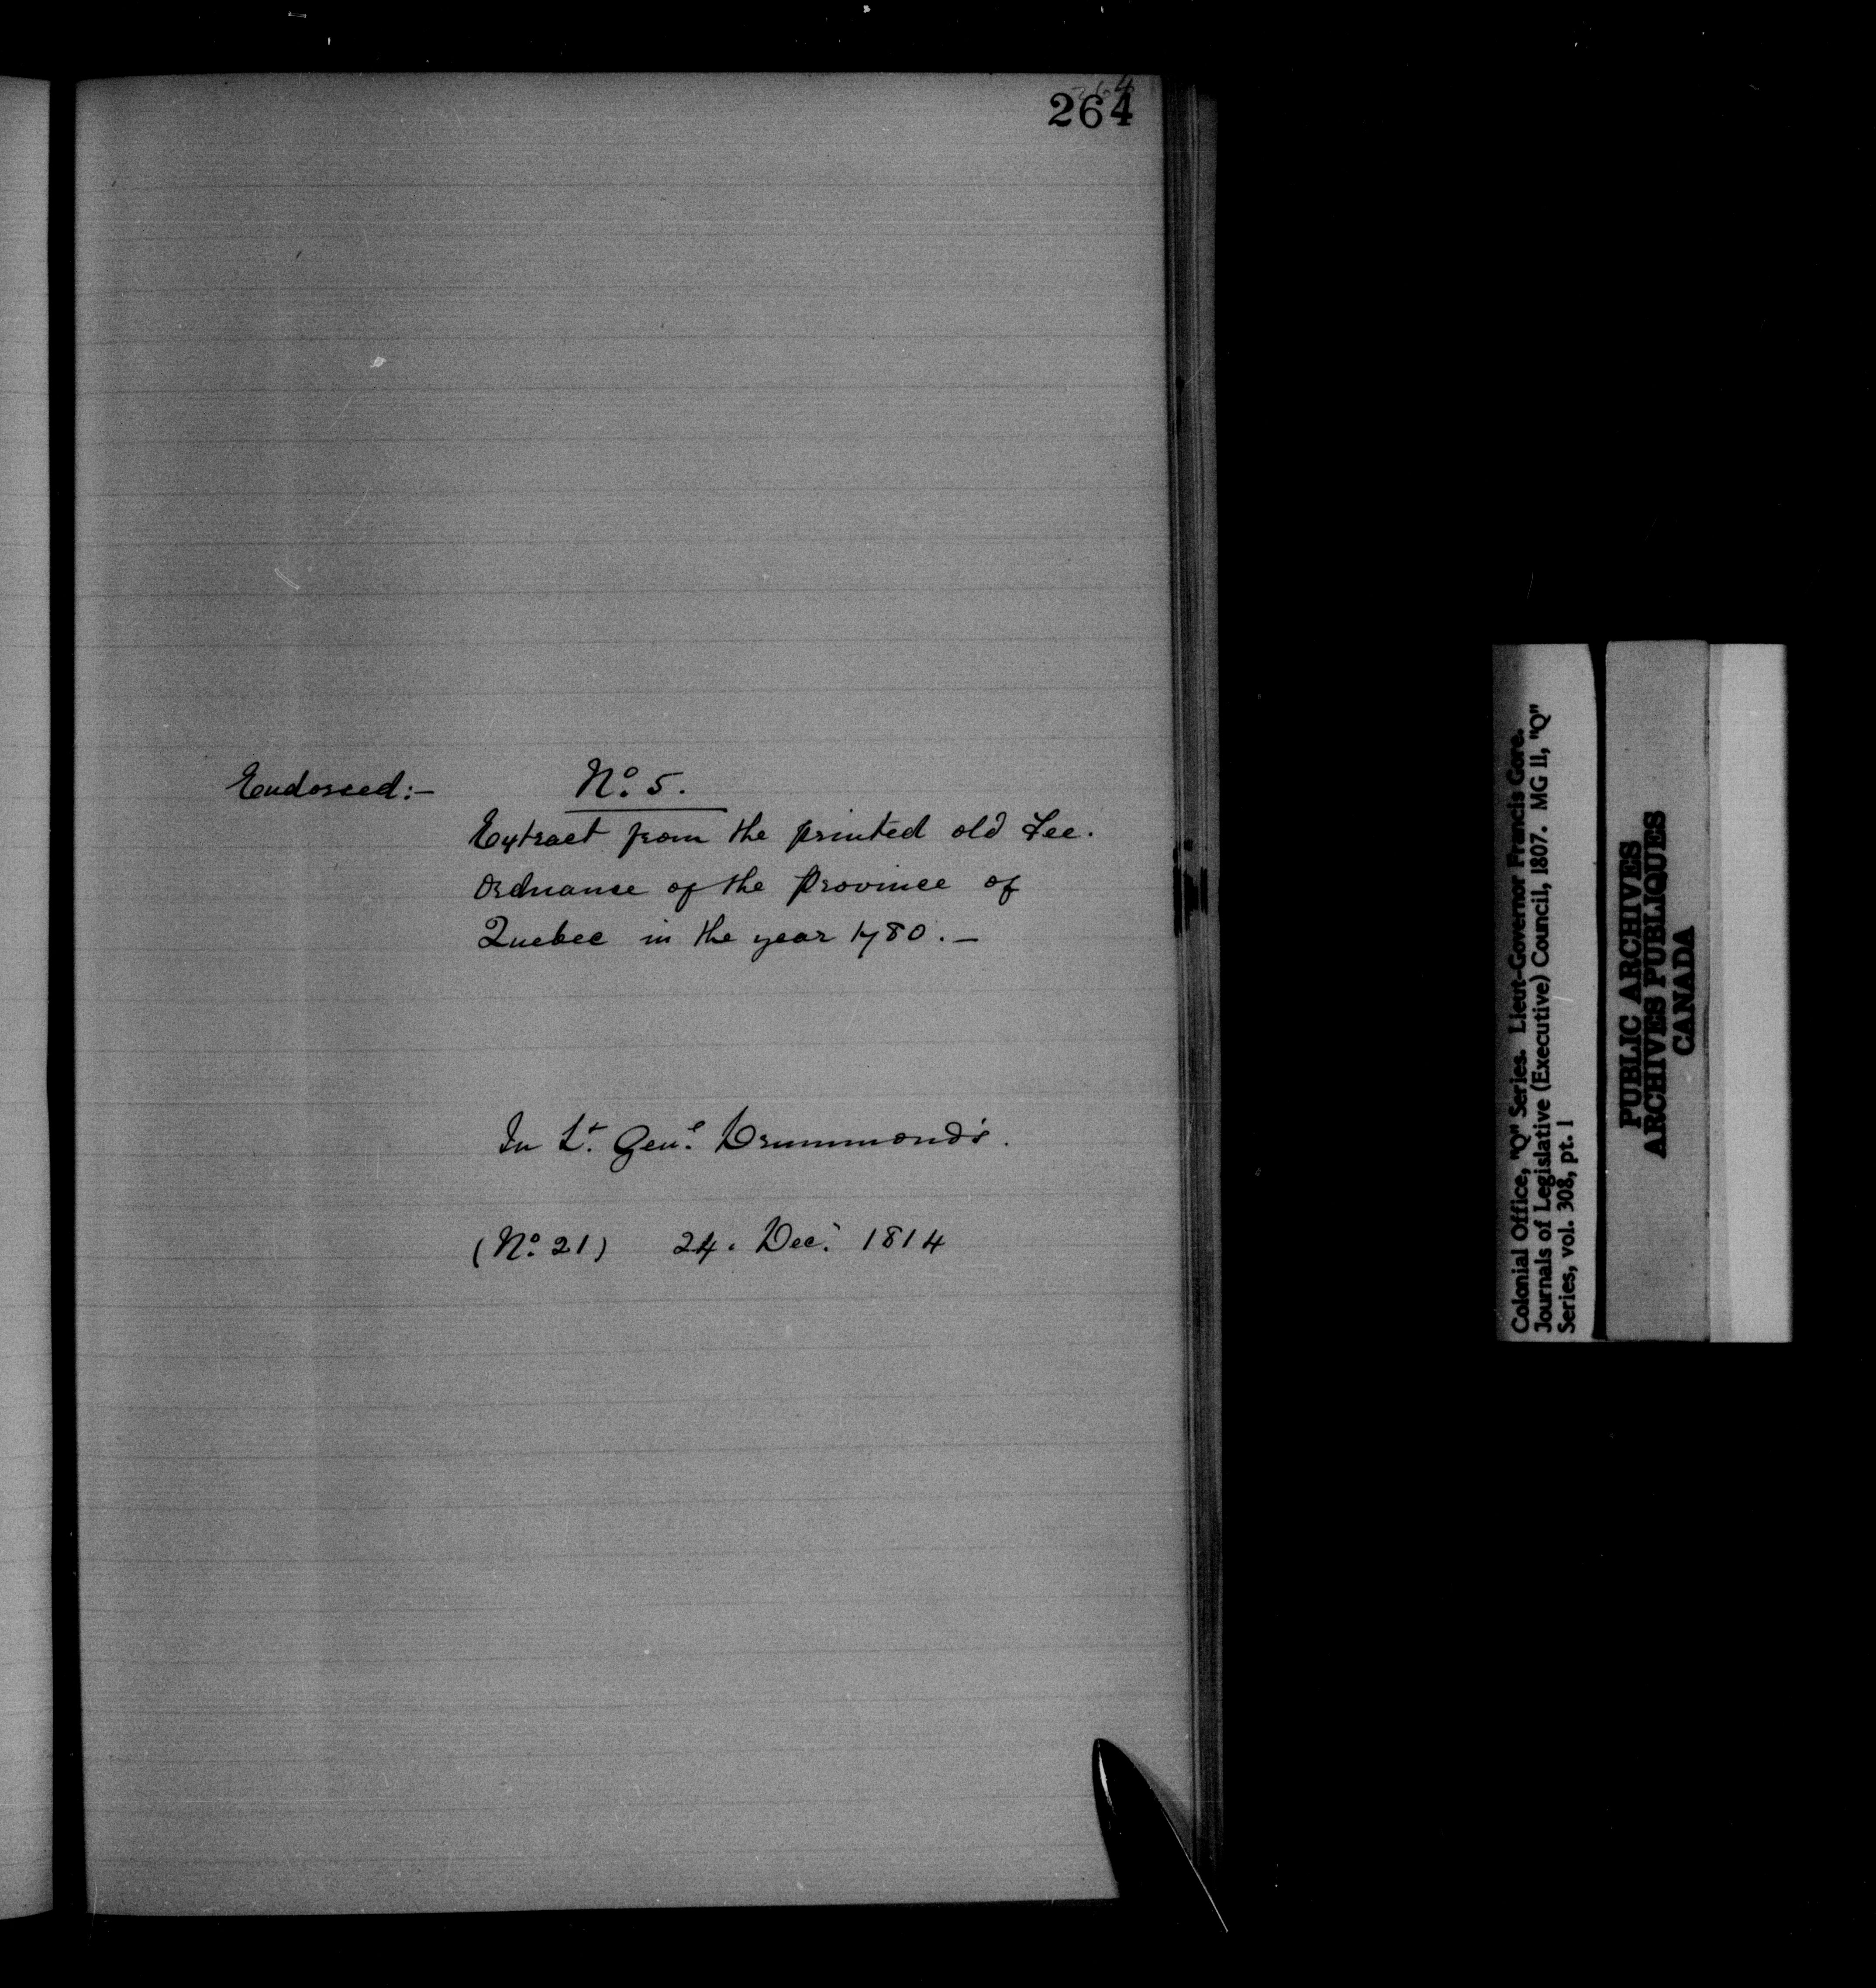 264
264
Endorsed:- Nº. 5.
Extract from the printed old Fee.
Ordnance of the Province of
Quebec in the year 1780. -
In Lt. Genl. Drummond's.
(Nº. 21) 24. Decr. 1814
Colonial Office, "Q" Series. Lieut-Governor Francis Gore.
Journals of Legislative (Executive) Council, 1807. MG 11, "Q"
Series, vol. 308, pt. 1
PUBLIC ARCHIVES
ARCHIVES PUBLIQUES
CANADA